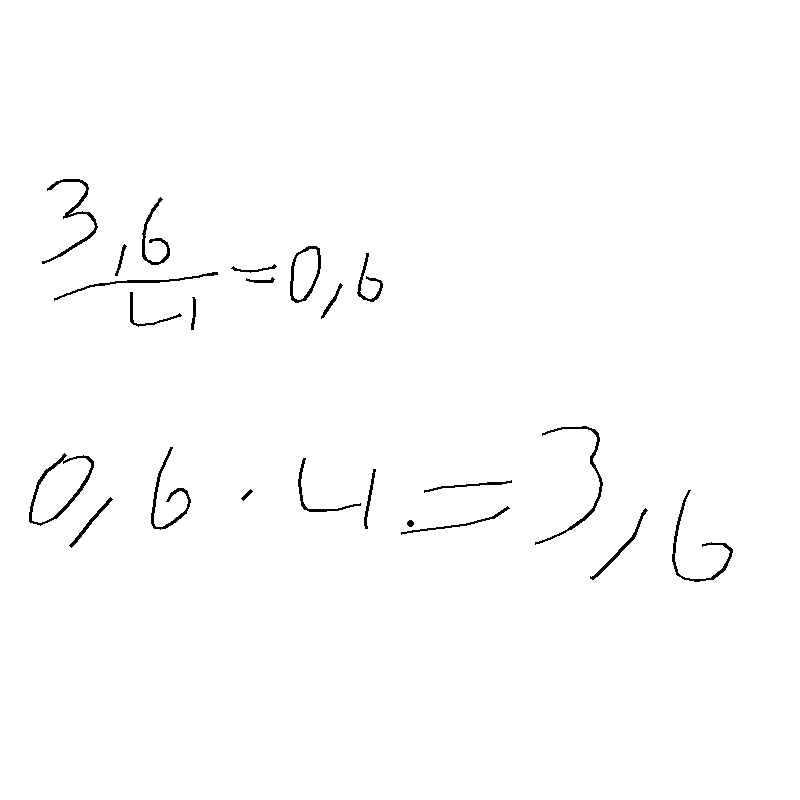 3,6/4=0,6
0,6 · 4.=3,6